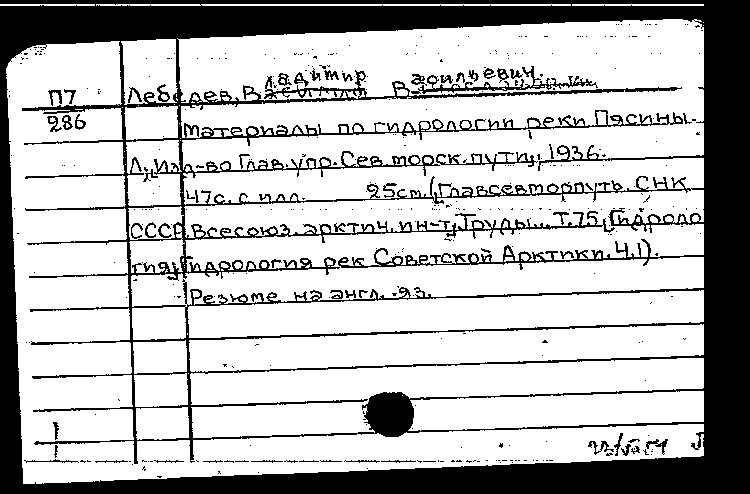 ладимир асильевич.
П7 Лебедев, В В
286
Материалы по гидрологии реки Пясины.
Л., Изд-во Глав.упр.Сев.морск.пути, 1936.
47с. с илл. 25см. (Главсевморпуть. СНК
СССР. Всесоюз. арктич. ин-т. Труды... Т.75, Гидроло
гия, Гидрология рек Советской Арктики. Ч.1).
Резюме на англ. яз.